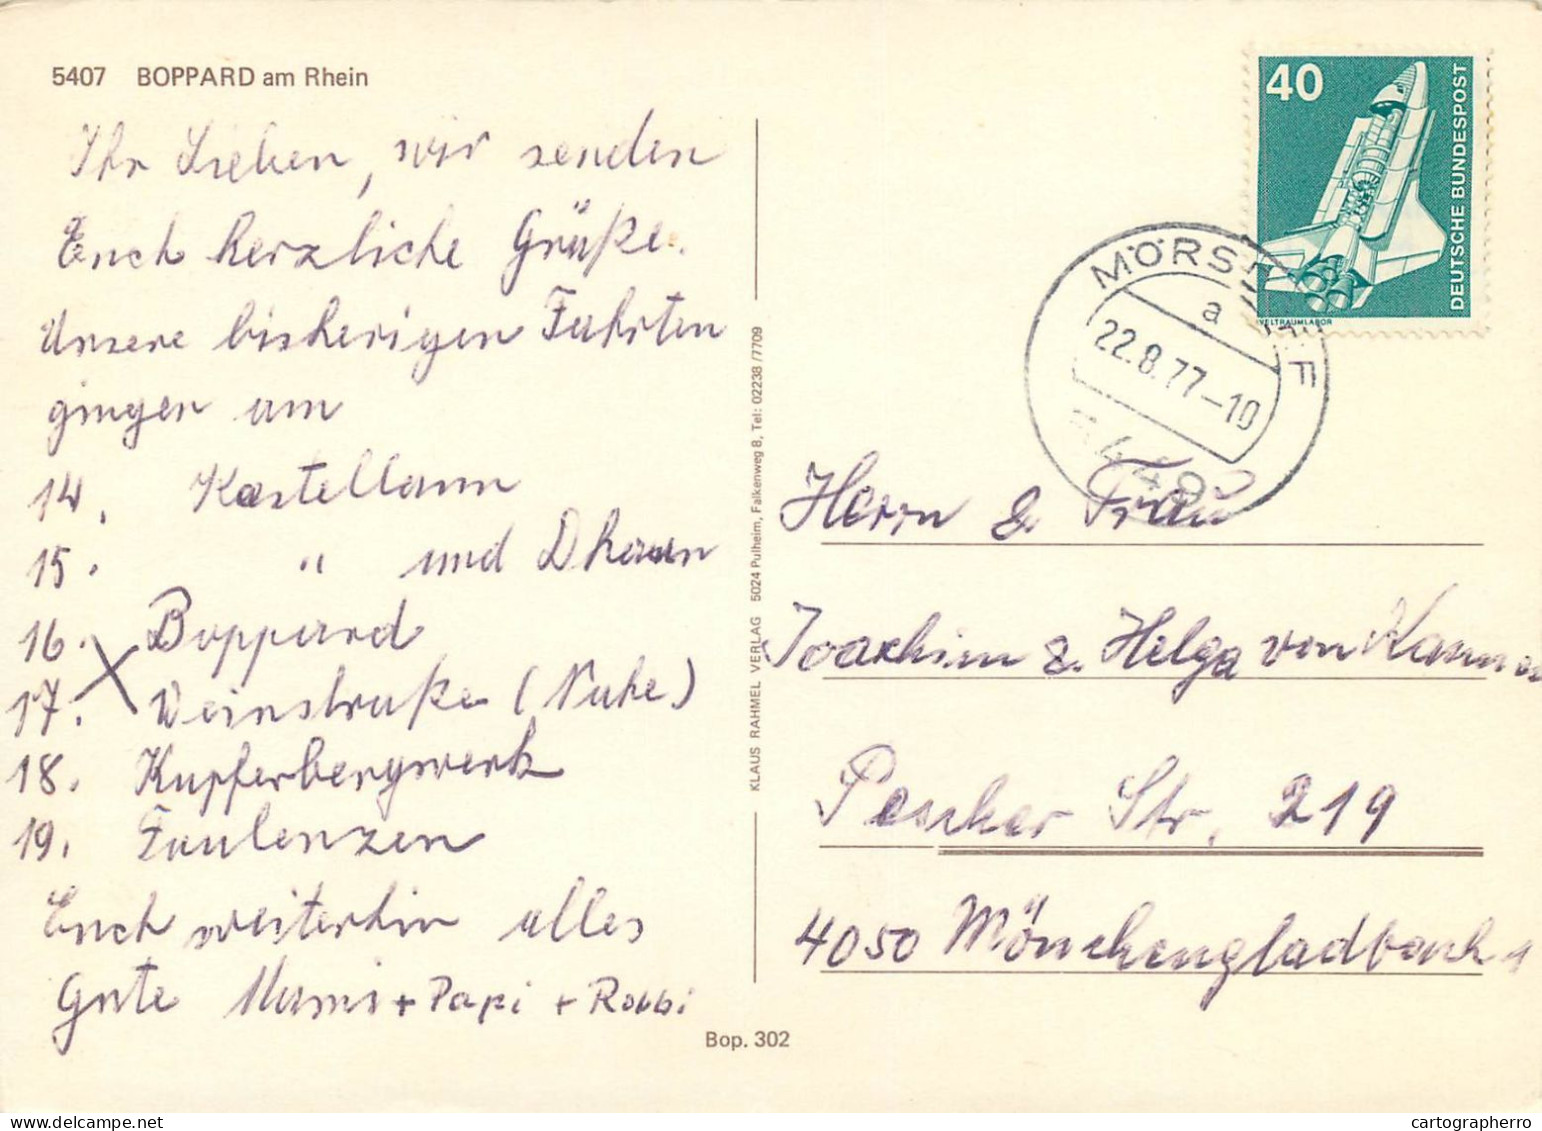 5407 BOPPARD am Rhein
Ihr Lieben, wir senden
Euch herzliche Grüße.
Unsere bisherigen Fahrten
gingen am
14. Kastellaun
15. " und Dhaun
16. Boppard
17. Weinstraße (Nahe)
18. Kupferbergwerk
19. Faulenzen
Euch weiterhin alles
Gute Mami + Papi + Robbi
KLAUS RAHMEL VERLAG 5024 Pulheim, Falkenweg 8, Tel: 02238/7709
Bop. 302
40
DEUTSCHE BUNDESPOST
WELTRAUMLABOR
a
22.8.77-10
Herrn & Frau
Joachim & Helga von
Pescher Str. 219
4050 Mönchengladbach 1
cartographerro